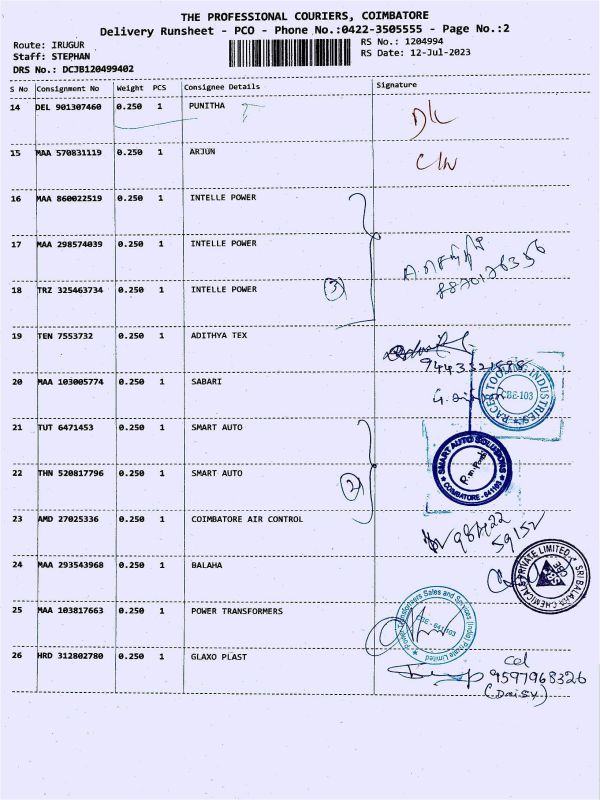 THE PROFESSIONAL COURIERS, COIMBATORE
Delivery Runsheet - PCO - Phone No.:0422-3505555 - Page No.:2
Route: IRUGUR
RS No.: 1204994
Staff: STEPHAN
RS Date: 12-Jul-2023
DRS No.: DCJB120499402
S No Consignment No Weight PCS Consignee Details Signature
14 DEL 901307460 0.250 1 PUNITHA
15 MAA 570831119 0.250 1 ARJUN
16 MAA 860022519 0.250 1 INTELLE POWER
17 MAA 298574039 0.250 1 INTELLE POWER
8870176356
18 TRZ 325463734 0.250 1 INTELLE POWER 3
19 TEN 7553732 0.250 1 ADITHYA TEX
20 MAA 103005774 0.250 1 SABARI
RACER TOOLING INDUSTRIES CBE-103
21 TUT 6471453 0.250 1 SMART AUTO
SMART AUTO SOLUTIONS COIMBATORE - 641103
22 THN 520817796 0.250 1 SMART AUTO 2
23 AMD 27025336 0.250 1 COIMBATORE AIR CONTROL
98422
59152
24 MAA 293543968 0.250 1 BALAHA
SRI BALAHA CHEMICALS PRIVATE LIMITED CBE
25 MAA 103817663 0.250 1 POWER TRANSFORMERS
Power Transformers Sales and Services (India) Private Limited CBE - 641 103
26 HRD 312802780 0.250 1 GLAXO PLAST
9597968326
(Daisy)